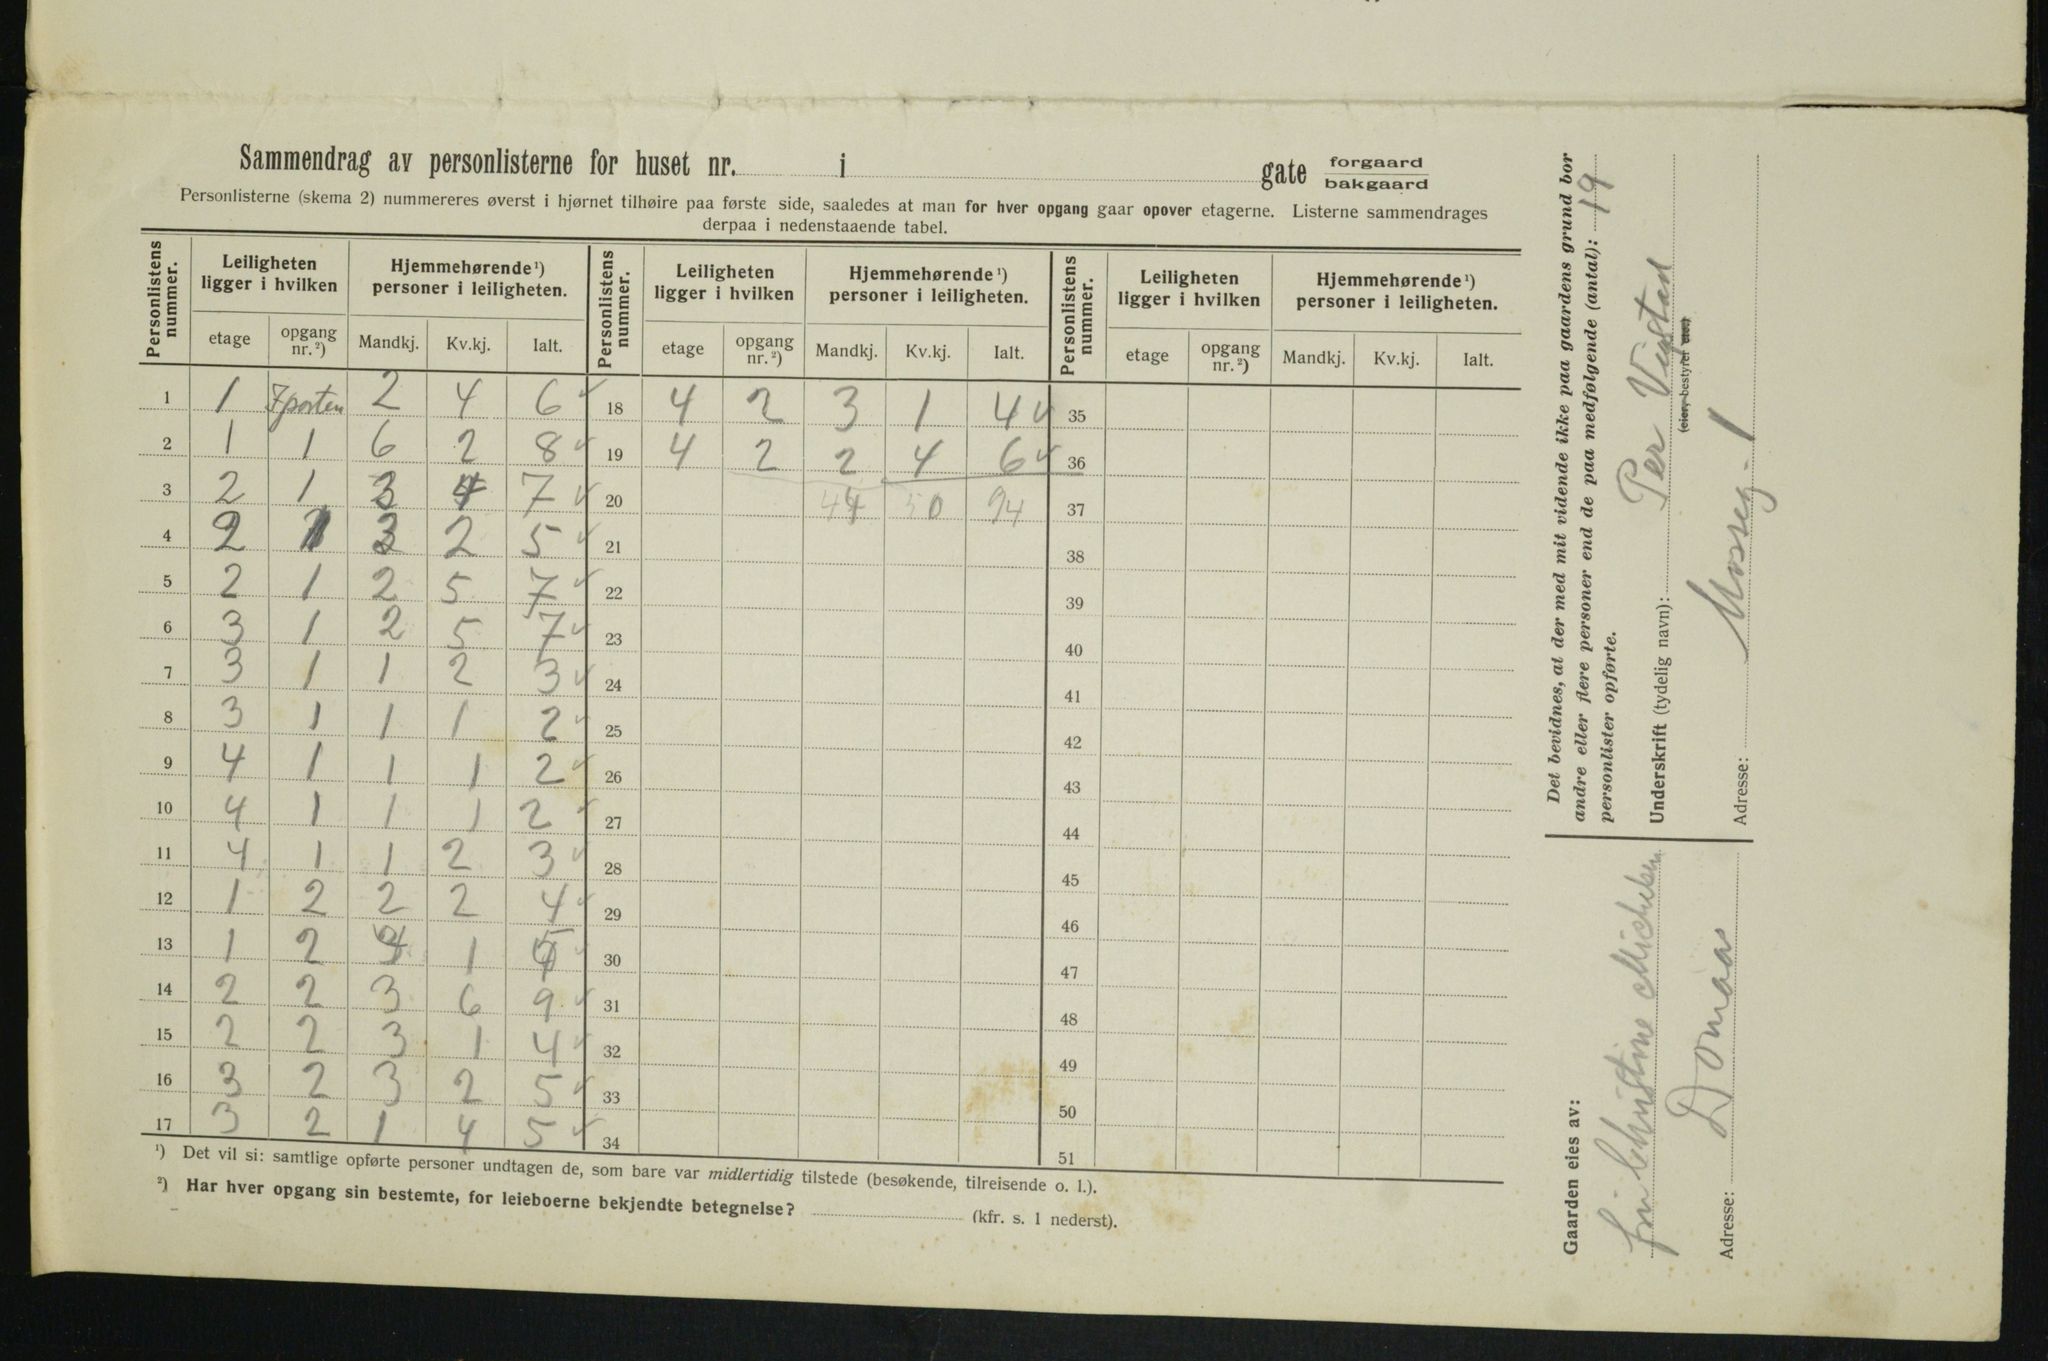 Sammendrag av personlisterne for huset nr. i gate forgaard bakgaard
Personlisterne (skema 2) nummereres øverst i hjørnet tilhøire paa første side, saaledes at man for hver opgang gaar opover etagerne. Listerne sammendrages
derpaa i nedenstaaende tabel.
Personlistens nummer. Leiligheten ligger i hvilken Hjemmehørende ¹) personer i leiligheten. Personlistens nummer. Leiligheten ligger i hvilken Hjemmehørende ¹) personer i leiligheten. Personlistens nummer. Leiligheten ligger i hvilken Hjemmehørende ¹) personer i leiligheten.
etage opgang nr. ²) Mandkj. Kv.kj. Ialt. etage opgang nr. ²) Mandkj. Kv.kj. Ialt. etage opgang nr. ²) Mandkj. Kv.kj. Ialt.
1 1 Iporten 2 4 6 ✓ 18 4 2 3 1 4 ✓ 35
2 1 1 6 2 8 ✓ 19 4 2 2 4 6 ✓ 36
3 2 1 3 4 7 ✓ 20 44 50 94 37
4 2 1 3 2 5 ✓ 21 38
5 2 1 2 5 7 ✓ 22 39
6 3 1 2 5 7 ✓ 23 40
7 3 1 1 2 3 ✓ 24 41
8 3 1 1 1 2 ✓ 25 42
9 4 1 1 1 2 ✓ 26 43
10 4 1 1 1 2 ✓ 27 44
11 4 1 1 2 3 ✓ 28 45
12 1 2 2 2 4 ✓ 29 46
13 1 2 4 1 5 ✓ 30 47
14 2 2 3 6 9 ✓ 31 48
15 2 2 3 1 4 ✓ 32 49
16 3 2 3 2 5 ✓ 33 50
17 3 2 1 4 5 ✓ 34 51
¹) Det vil si: samtlige opførte personer undtagen de, som bare var midlertidig tilstede (besøkende, tilreisende o. l.).
²) Har hver opgang sin bestemte, for leieboerne bekjendte betegnelse? (kfr. s. 1 nederst).
Det bevidnes, at der med mit vidende ikke paa gaardens grund bor
andre eller flere personer end de paa medfølgende (antal): 19
personlister opførte.
Underskrift (tydelig navn): Per Vigstad
(eier, bestyrer etc.)
Adresse: Mosseg. 1
Gaarden eies av:
Christine Michelsen
Adresse: Domaas